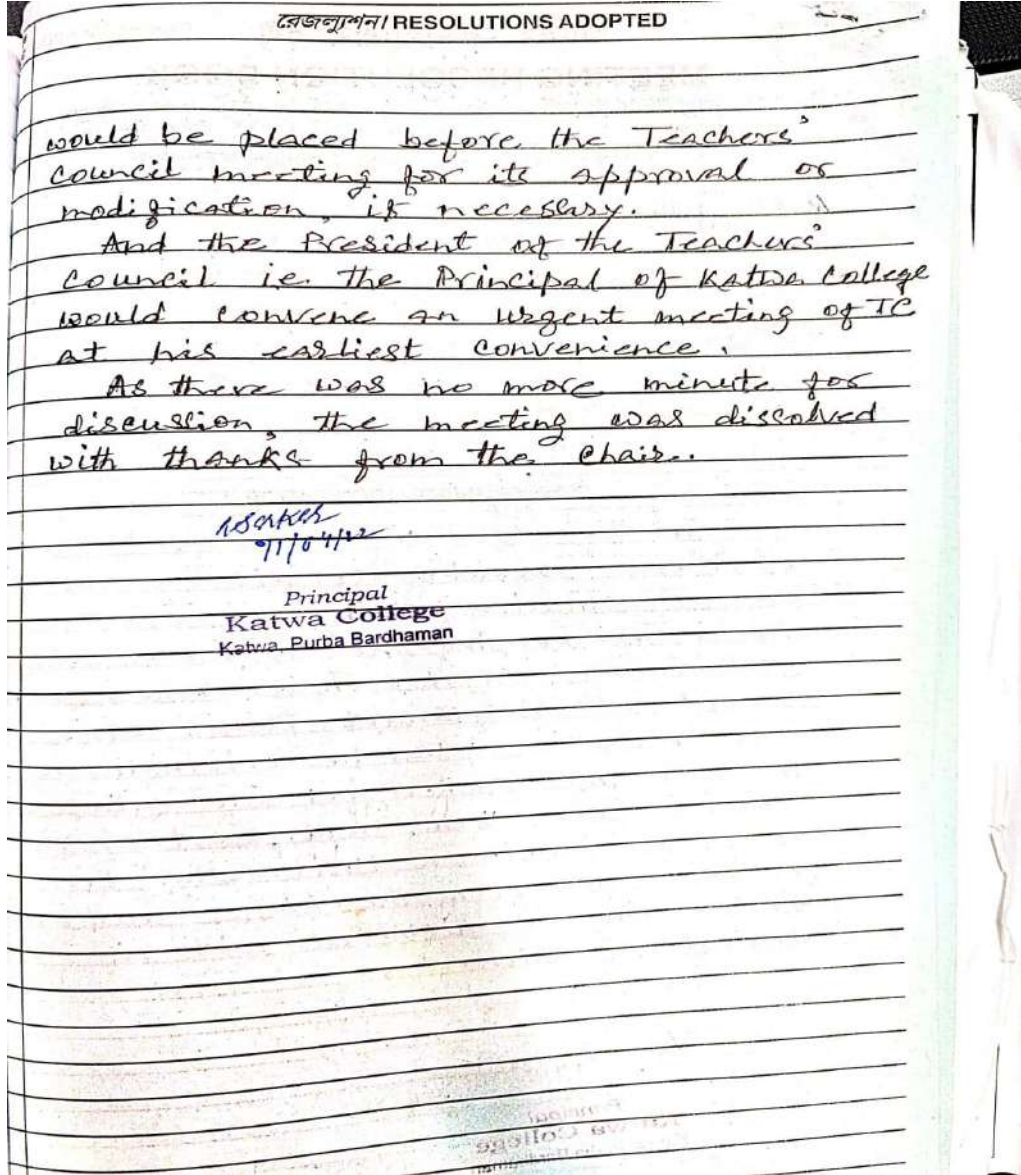 রেজল্যুশন / RESOLUTIONS ADOPTED
would be placed before the Teachers'
council meeting for its approval or
modification, if necessary.
And the President of the Teachers'
council i.e. the Principal of Katwa College
would convene an urgent meeting of TC
at his earliest convenience.
As there was no more minute for
discussion, the meeting was dissolved
with thanks from the Chair.
Principal
Katwa College
Katwa, Purba Bardhaman